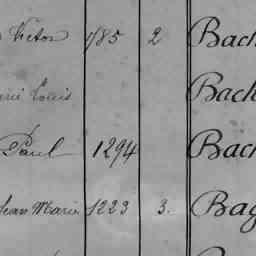 Victor 785 2 Bach
Louis Bach
Paul 1294 Bach
Jean Marie 1223 3. Bag